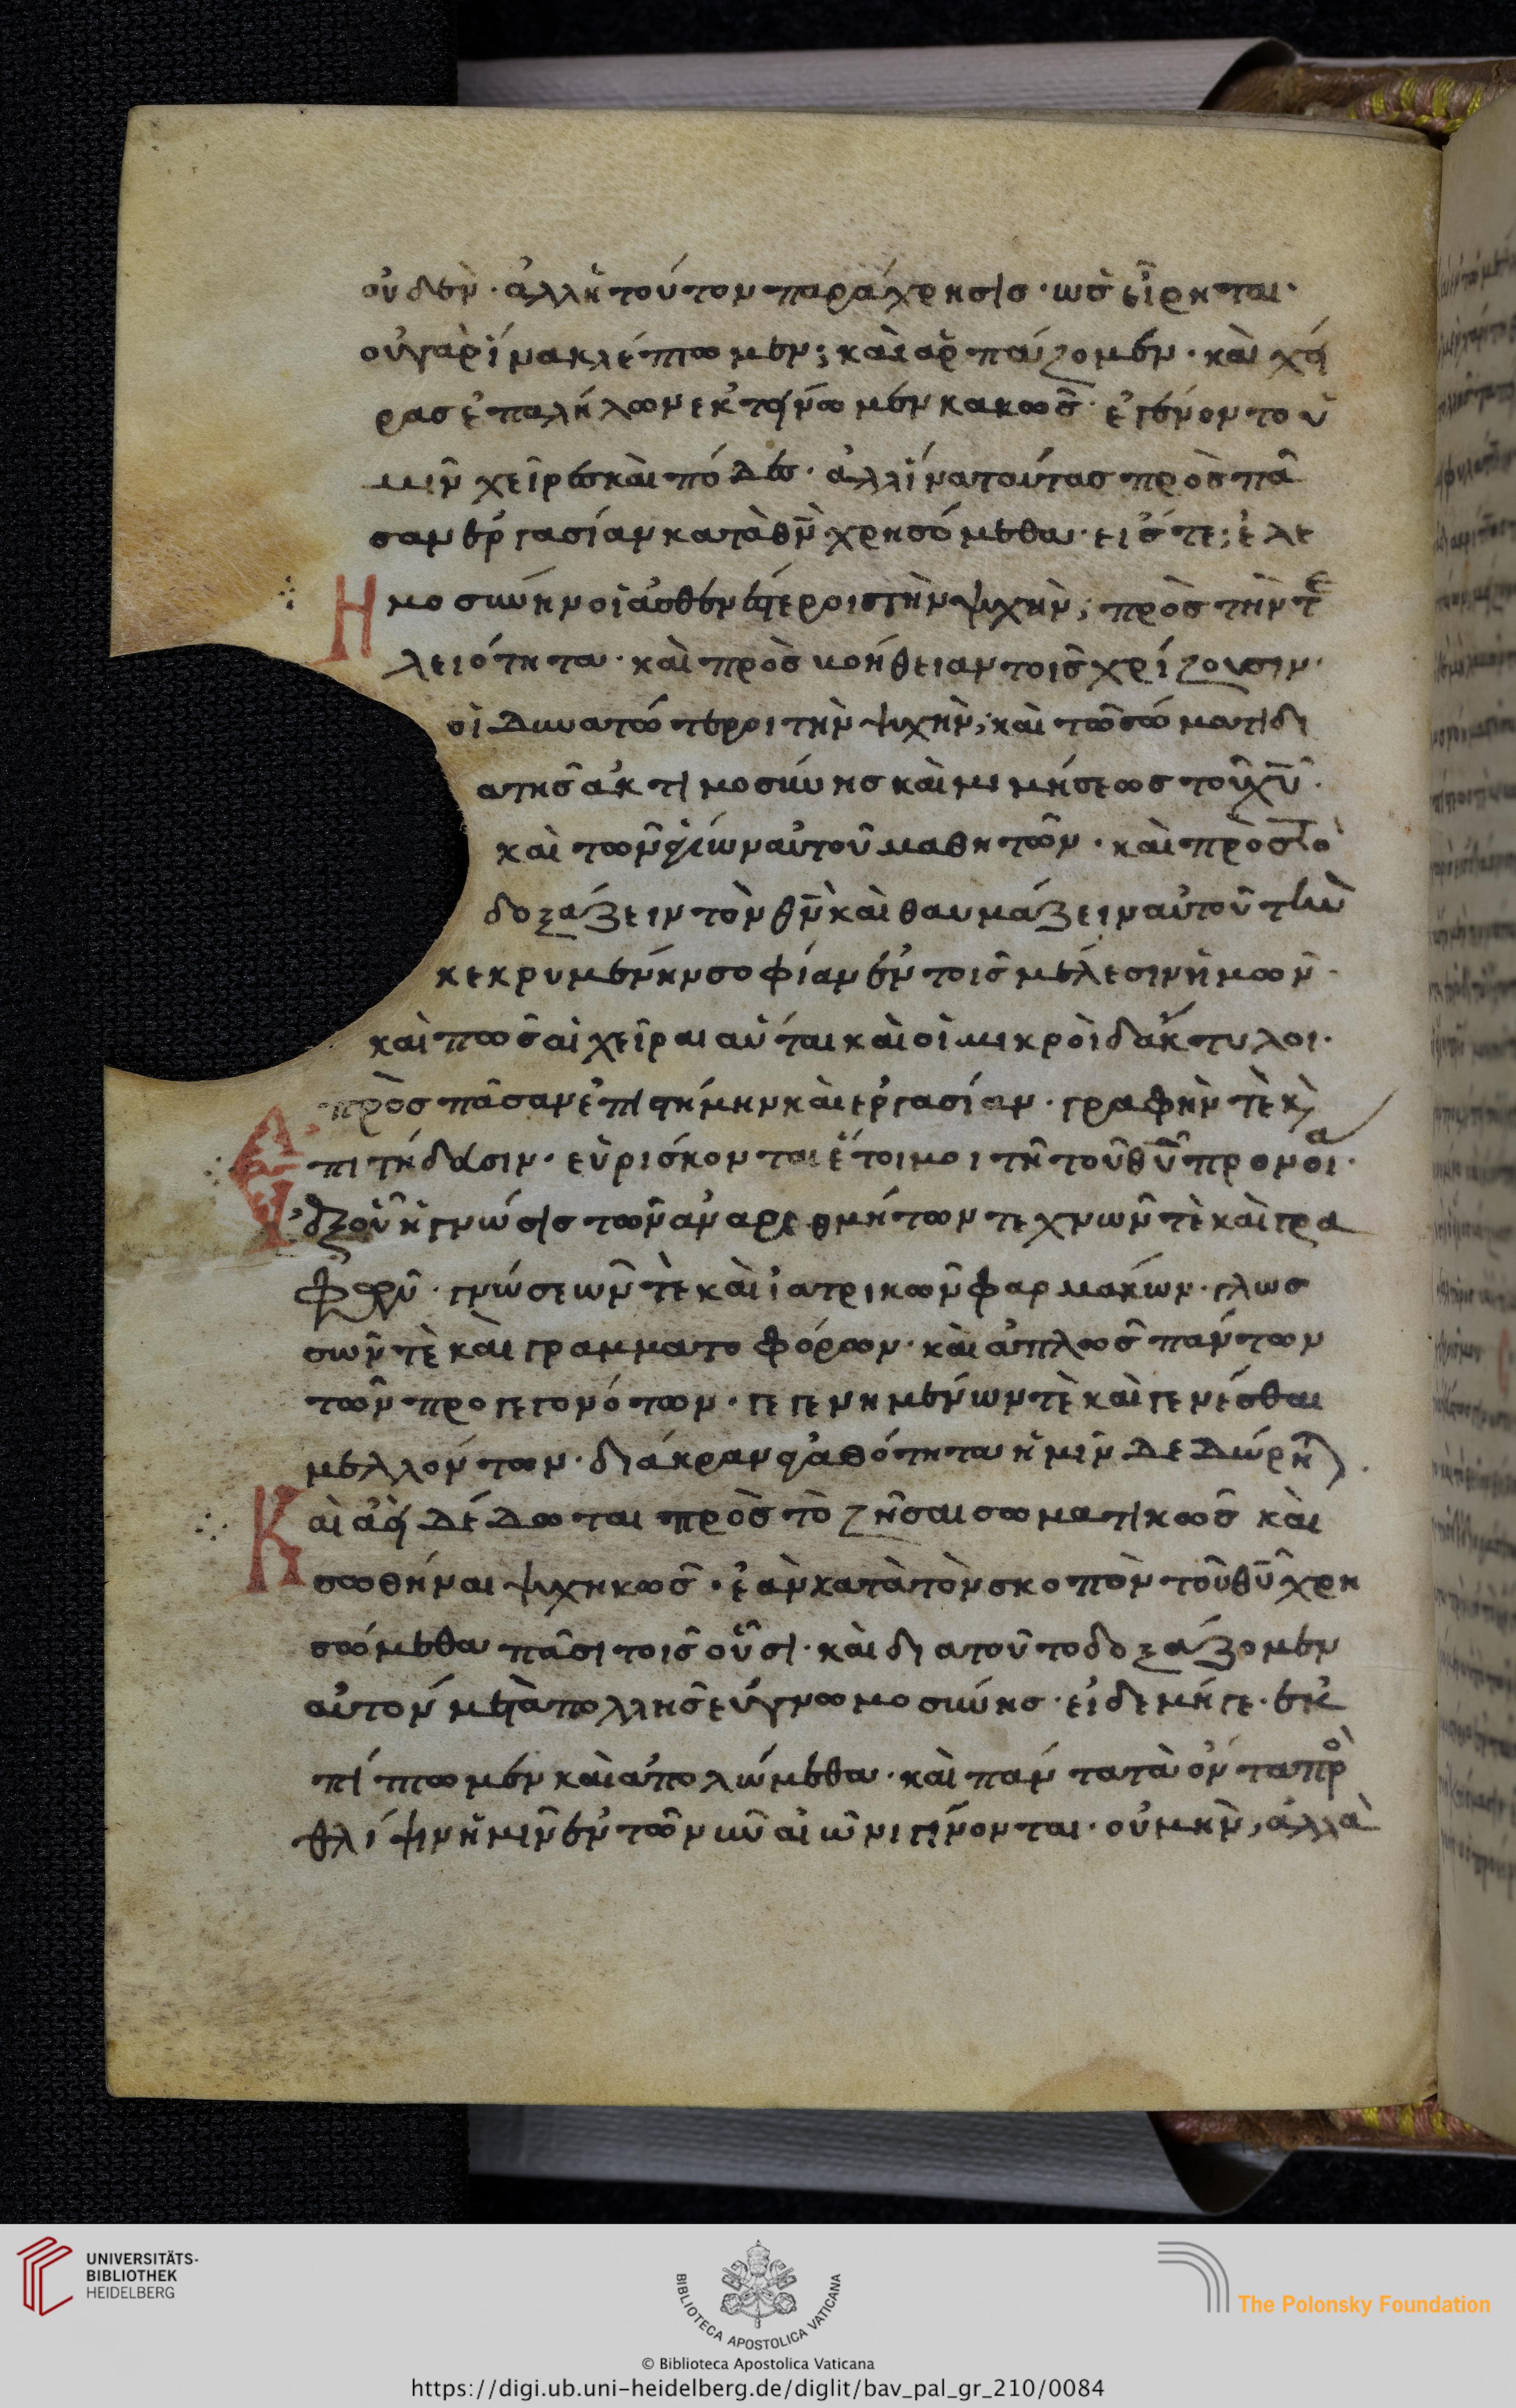 οὐδὲν· ἀλλ' ἡ τούτου παράχρησις· ὡς εἴρηται·
οὐ γὰρ ἵνα κλέπτωμεν; καὶ ἁρπάζομεν· καὶ χεῖ
ρας ἐπαλήλων ἐκτείνωμεν κακῶς· ἐγένοντο ἡ
μῖν χεῖρες καὶ πόδες· ἀλλ' ἵνα ταύτας πρὸς πᾶ
σαν ἐργασίαν κατὰ θν̅ χρησόμεθα· εἴς τε; ἐλε
Ημοσύνην οἱ ἀσθενέστεροις τὴν ψυχὴν; πρὸς τὴν τε
λειότητα· καὶ πρὸς βοήθειαν τοῖς χρίζουσιν·
οἱ δυνατώτεροι τὴν ψυχὴν; καὶ τῶ σώματι δι
α τῆς ἀκτιμοσύνης καὶ μιμήσεως τοῦ χυ̅·
καὶ τῶν ἁγίων αὐτοῦ μαθητῶν· καὶ πρὸς το
δοξάζειν τὸν θν̅ καὶ θαυμάζειν αὐτοῦ τὴν
κεκρυμένην σοφίαν ἐν τοῖς μέλεσιν ἡμῶν·
καὶ πῶς αἱ χεῖραι αὗται καὶ οἱ μικροὶ δάκτυλοι·
πρὸς πᾶσαν ἐπιστήμην καὶ ἐργασίαν· γραφὴν τὲ κὶ
Επιτήδασιν· εὑρίσκονται ἕτοιμοι τῆ τοῦ θυ̅ προνοίᾳ·
ἐξ οὗ ἡ γνώσις τῶν ἀναριθμήτων τεχνῶν τὲ καὶ γρα
φῶν· γνώσεων τὲ καὶ ἰατρικῶν φαρμακίων· γλωσ
σῶν τὲ καὶ γραμματοφόρων· καὶ ἁπλῶς πάντων
τῶν προγεγονότων· γεγενημένων τὲ καὶ γενέσθαι
μελλόντων· δι' ἄκραν ἀγαθότητα ἡμῖν δεδώρηται·
Καὶ ἀεὶ δέδωται πρὸς τὸ ζῆσαι σωματικῶς καὶ
σωθῆναι ψυχηκῶς· ἐὰν κατὰ τὸν σκοπὸν τοῦ θυ̅ χρη
σώμεθα πᾶσι τοῖς οὖσι· καὶ διὰ τοῦτο δοξάζομεν
αὐτὸν μετὰ πολλῆς εὐγνωμοσύνης· εἰ δὲ μήγε· ἐκ
πίπτωμεν καὶ ἀπολώμεθα· καὶ πάντα τὰ ὄντα πρὸ
θλίψιν ἡμῖν ἐν τῶ νῦν αἰῶνι γίνονται· οὐ μὴν, ἀλλὰ
UNIVERSITÄTS-
BIBLIOTHEK
HEIDELBERG
BIBLIOTECA APOSTOLICA VATICANA
The Polonsky Foundation
© Biblioteca Apostolica Vaticana
https://digi.ub.uni-heidelberg.de/diglit/bav_pal_gr_210/0084